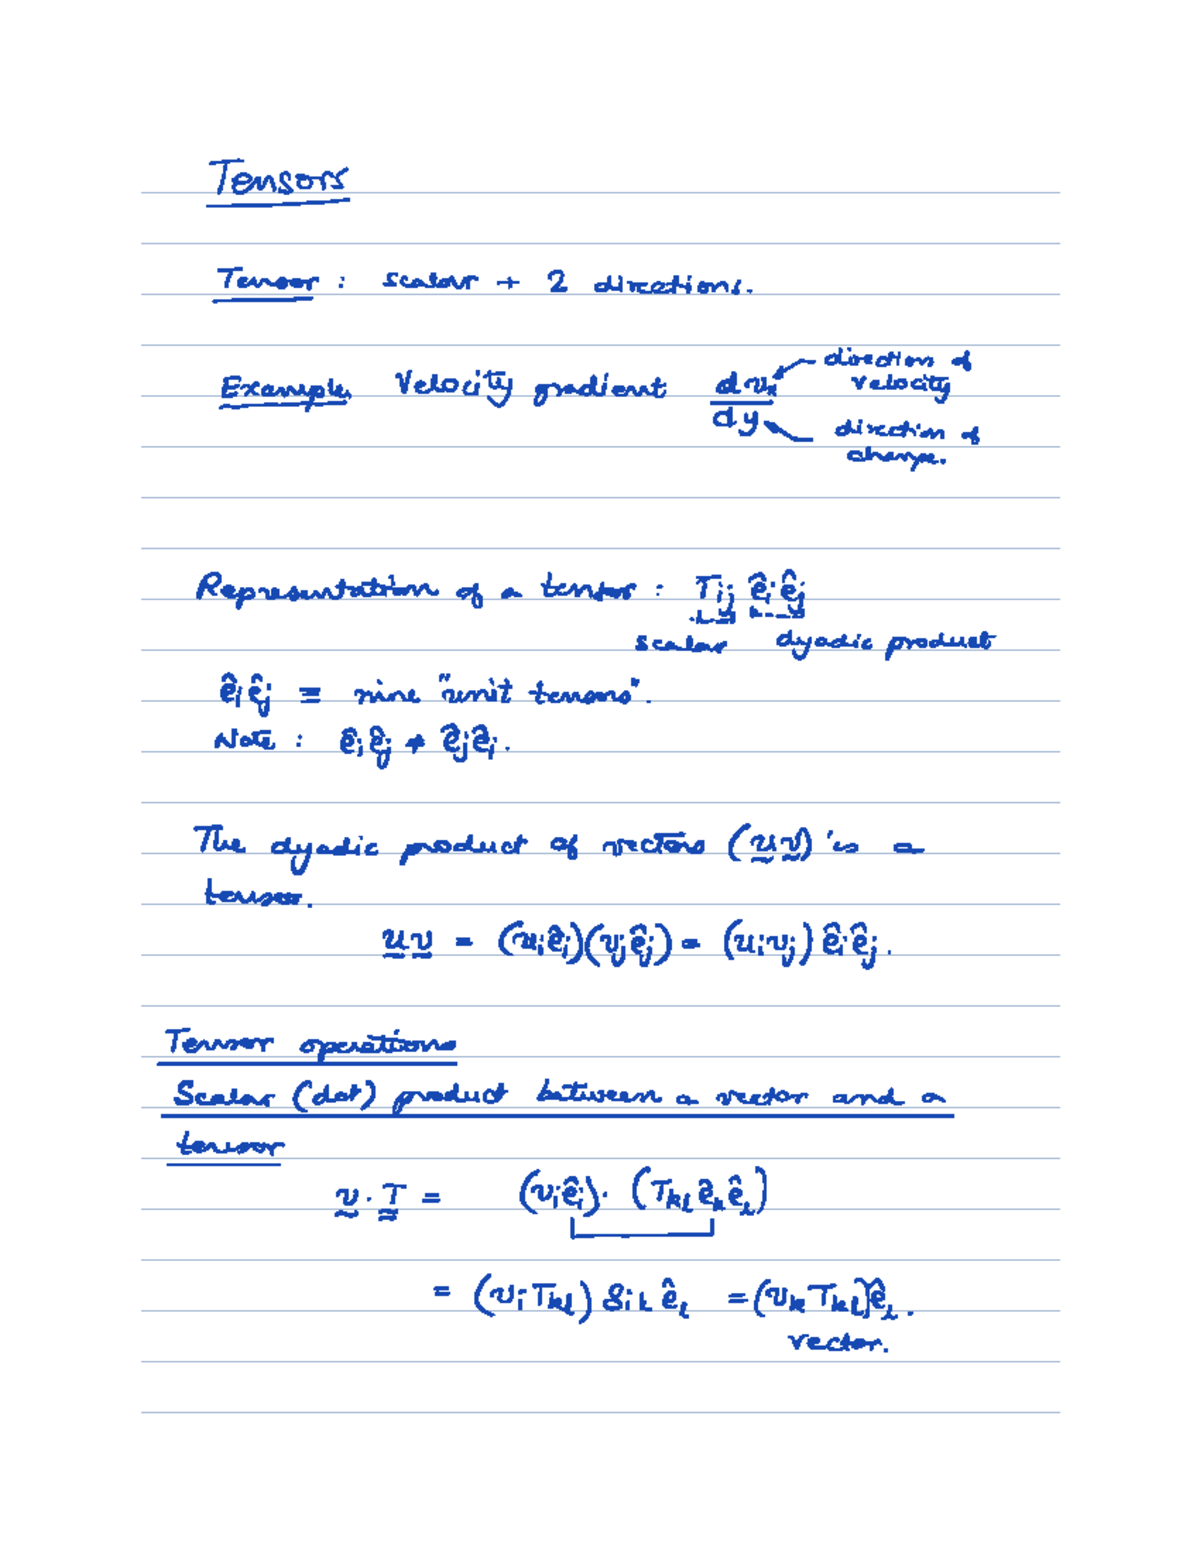 Tensors
Tensor : scalar + 2 directions.
Example Velocity gradient dvₓ/dy direction of velocity
direction of change.
Representation of a tensor : Tᵢⱼ êᵢêⱼ
scalar dyadic product
êᵢêⱼ ≡ nine "unit tensors".
Note : êᵢêⱼ ≠ êⱼêᵢ.
The dyadic product of vectors (u v) is a
tensor.
u v = (uᵢêᵢ)(vⱼêⱼ) = (uᵢvⱼ) êᵢêⱼ.
Tensor operations
Scalar (dot) product between a vector and a
tensor
v · T = (vᵢêᵢ) · (Tₖₗ êₖêₗ)
= (vᵢTₖₗ) δᵢₖ êₗ = (vₖTₖₗ)êₗ.
vector.